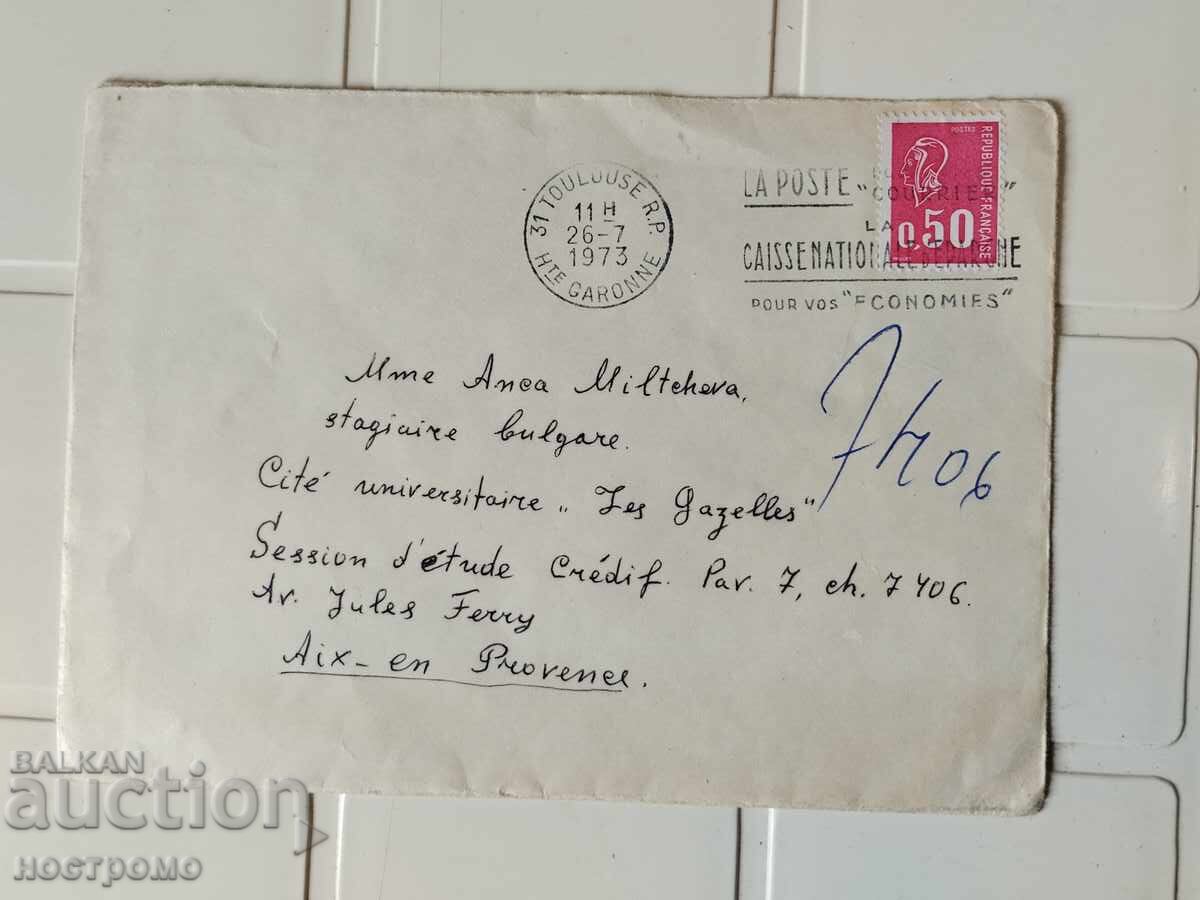 31 TOULOUSE R.P.
11 H
26-7
1973
HTE GARONNE
LA POSTE
"COURRIER"
LA
CAISSE NATIONALE D'EPARGNE
POUR VOS "ECONOMIES"
POSTES
REPUBLIQUE FRANÇAISE
0,50
7406
Mme Anca Miltcheva,
stagiaire bulgare.
Cité universitaire „Les Gazelles"
Session d'étude Crédif. Pav. 7, ch. 7406.
Av. Jules Ferry
Aix-en Provence.
BALKAN
auction
ностромо